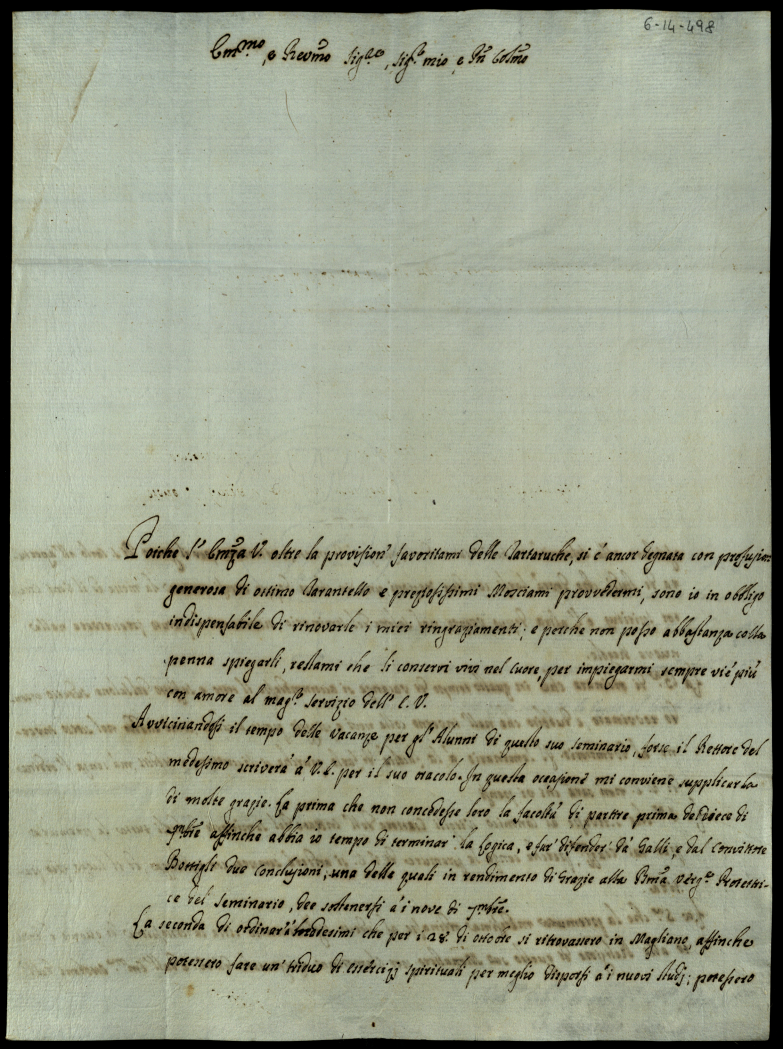 6-14-498
Em.mo, e Rev.mo Sig.re, Sig.re mio, e Pñ Col.mo
Poiche l'Em̃za V. oltre la provision' favoritami delle Tartaruche, si è ancor degnata con profusion
generosa di ottimo Tarantello e preziosissimi Mosciami provvedermi, sono io in obbligo
indispensabile di rinovarle i miei ringraziamenti; e perche non posso abbastanza colla
penna spiegarli, restami che li conservi vivi nel cuore, per impiegarmi sempre vie più
con amore al mag.r servizio dell' E. V.
Avvicinandosi il tempo delle vacanze per gl' Alunni di questo suo seminario, forse il Rettore del
medesimo scriverà à V. E. per il suo oracolo. In questa occasione mi conviene supplicarla
di molte grazie. La prima che non concedesse loro la facoltà di partire prima de' dieci di
7mbre affinche abbia io tempo di terminar' la logica, e far' difender' da' Galli, e dal Convittore
Bottigli due Conclusioni, una delle quali in rendimento di Grazie alla Bm̃a Verg.e Protettri-
ce del Seminario, dee sostenersi à i nove di 7mbre.
La seconda di ordinar' à medesimi che per i 28. di ottobre si ritrovassero in Magliano, affinche
potessero fare un' triduo di esercizj spirituali per meglio disporsi à i nuovi studj; potessero